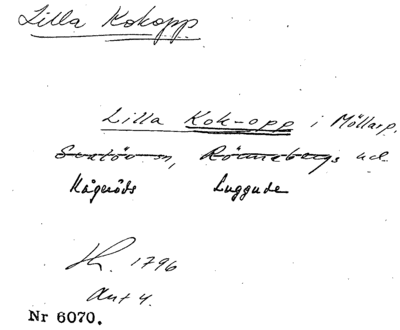 Lilla Kokopp
Lilla Kok-opp i Möllarp,
Svalöv sn, Rönnebergs hd
Kågeröds Luggude
Sk. 1796
Akt 4.
Nr 6070.